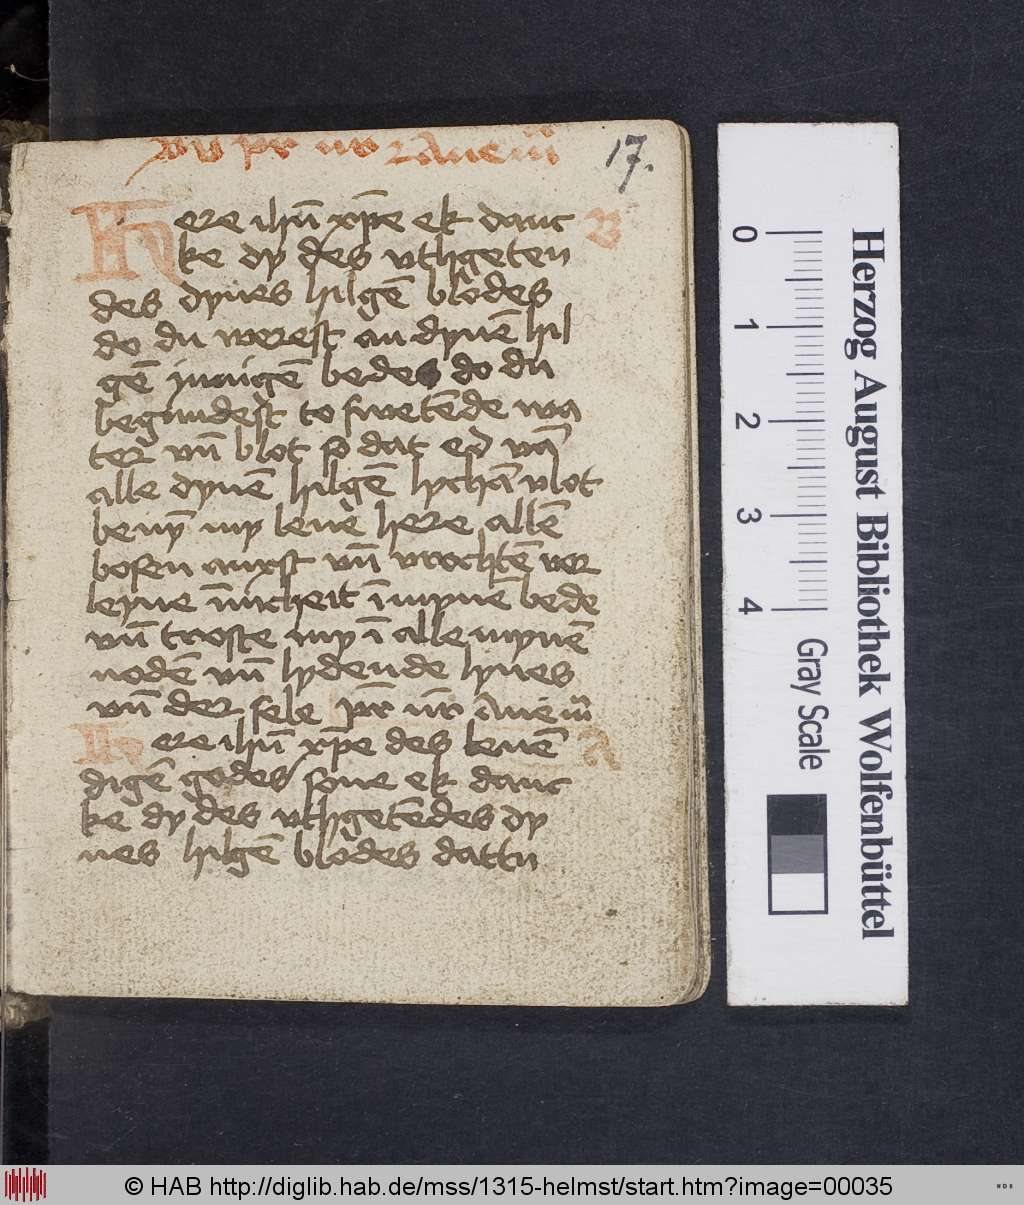 xv pr nr 2 Aue m̄ 17.
Here ihū xp̄e ek danc B
ke dy des vthgeten
des dynes hilgē blodes
do du werest an dynē hil
gē ynnigē bedes do du
begundest to swetēde wa
ter vn̄ blot so dat ed vā
alle dynē hilgē lychā vlot
beny my leue here allē
bosen anxst vn̄ vrochtē ver
leyne īnicheit ī mynē bede
vn̄ troste my ī alle mynē
nodē vn̄ lydende lyues
vn̄ der sele pr̄ nr̄ Aue m̄
Here ihū xp̄e des leuē A
digē godes sone ek danc
ke dy des vthgetēdes dy
nes hilgē blodes dattu
0 1 2 3 4
Gray Scale
Herzog August Bibliothek Wolfenbüttel
© HAB http://diglib.hab.de/mss/1315-helmst/start.htm?image=00035